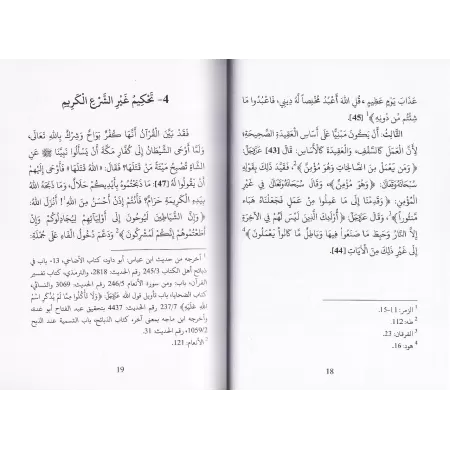 عَذَابَ يَوْمٍ عَظِيمٍ ۞ قُلِ اللَّهَ أَعْبُدُ مُخْلِصاً لَهُ دِينِي، فَاعْبُدُوا مَا
شِئْتُم مِّن دُونِهِ﴾¹ [45].
الثَّالِثُ: أَنْ يَكُونَ مَبْنِيًّا عَلَى أَسَاسِ الْعَقِيدَةِ الصَّحِيحَةِ؛
لأَنَّ الْعَمَلَ كَالسَّقْفِ، وَالْعَقِيدَةَ كَالأَسَاسِ: قَالَ [43]
﴿وَمَن يَعْمَلْ مِنَ الصَّالِحَاتِ وَهُوَ مُؤْمِنٌ﴾²، فَقَيَّدَ ذَلِكَ بِقَوْلِهِ
﴿وَهُوَ مُؤْمِنٌ﴾، وَقَالَ فِي غَيْرِ
الْمُؤْمِنِ: ﴿وَقَدِمْنَا إِلَى مَا عَمِلُوا مِنْ عَمَلٍ فَجَعَلْنَاهُ هَبَاء
مَنثُوراً﴾³، وَقَالَ ﴿أُوْلَئِكَ الَّذِينَ لَيْسَ لَهُمْ فِي الآخِرَةِ
إِلاَّ النَّارُ وَحَبِطَ مَا صَنَعُوا فِيهَا وَبَاطِلٌ مَّا كَانُوا يَعْمَلُونَ﴾⁴
إِلَى غَيْرِ ذَلِكَ مِنَ الْآيَاتِ [44].
¹ الزمر: 11-15.
² طه: 112.
³ الفرقان: 23.
⁴ هود: 16.
18
4- تَحْكِيمُ غَيْرِ الشَّرْعِ الْكَرِيمِ
فَقَدْ بَيَّنَ الْقُرْآنُ أَنَّهَا كُفْرٌ بَوَاحٌ وَشِرْكٌ بِاللَّهِ تَعَالَى،
وَلَمَّا أَوْحَى الشَّيْطَانُ إِلَى كُفَّارِ مَكَّةَ أَنْ يَسْأَلُوا نَبِيَّنَا ﷺ عَنِ
الشَّاةِ تُصْبِحُ مَيْتَةً مَنْ قَتَلَهَا؟ فَقَالَ: «اللَّهُ قَتَلَهَا» فَأَوْحَى إِلَيْهِمْ
أَن يَقُولُوا لَهُ [47]: مَا ذَبَحْتُمُوهُ بِأَيْدِيكُمْ حَلَالٌ، وَمَا ذَبَحَهُ اللَّهُ
بِيَدِهِ الْكَرِيمَةِ حَرَامٌ؟ فَأَنْتُمْ إِذَنْ أَحْسَنُ مِنَ اللَّهِ! أَنْزَلَ اللَّهُ:
﴿وَإِنَّ الشَّيَاطِينَ لَيُوحُونَ إِلَى أَوْلِيَآئِهِمْ لِيُجَادِلُوكُمْ وَإِنْ
أَطَعْتُمُوهُمْ إِنَّكُمْ لَمُشْرِكُونَ﴾². وَعَدَمُ دُخُولِ الْفَاءِ عَلَى جُمْلَةِ:
¹ أخرجه من حديث ابن عباس: أبو داود، كتاب الأضاحي، 13، باب في
ذبائح أهل الكتاب 245/3 رقم الحديث: 2818، والترمذي، كتاب تفسير
القرآن، باب: ومن سورة الأنعام 246/5 رقم الحديث: 3069، والنسائي،
كتاب الضحايا، باب: تأويل قول الله ﴿وَلَا تَأْكُلُوا مِمَّا لَمْ يُذْكَرِ اسْمُ
اللَّهِ عَلَيْهِ﴾ 237/7 رقم الحديث: 4437 بتحقيق عبد الفتاح أبو غدة،
وأخرجه ابن ماجه بمعنى آخر، كتاب الذبائح، باب التسمية عند الذبح
1059/2، رقم الحديث: 31.
² الأنعام: 121.
19